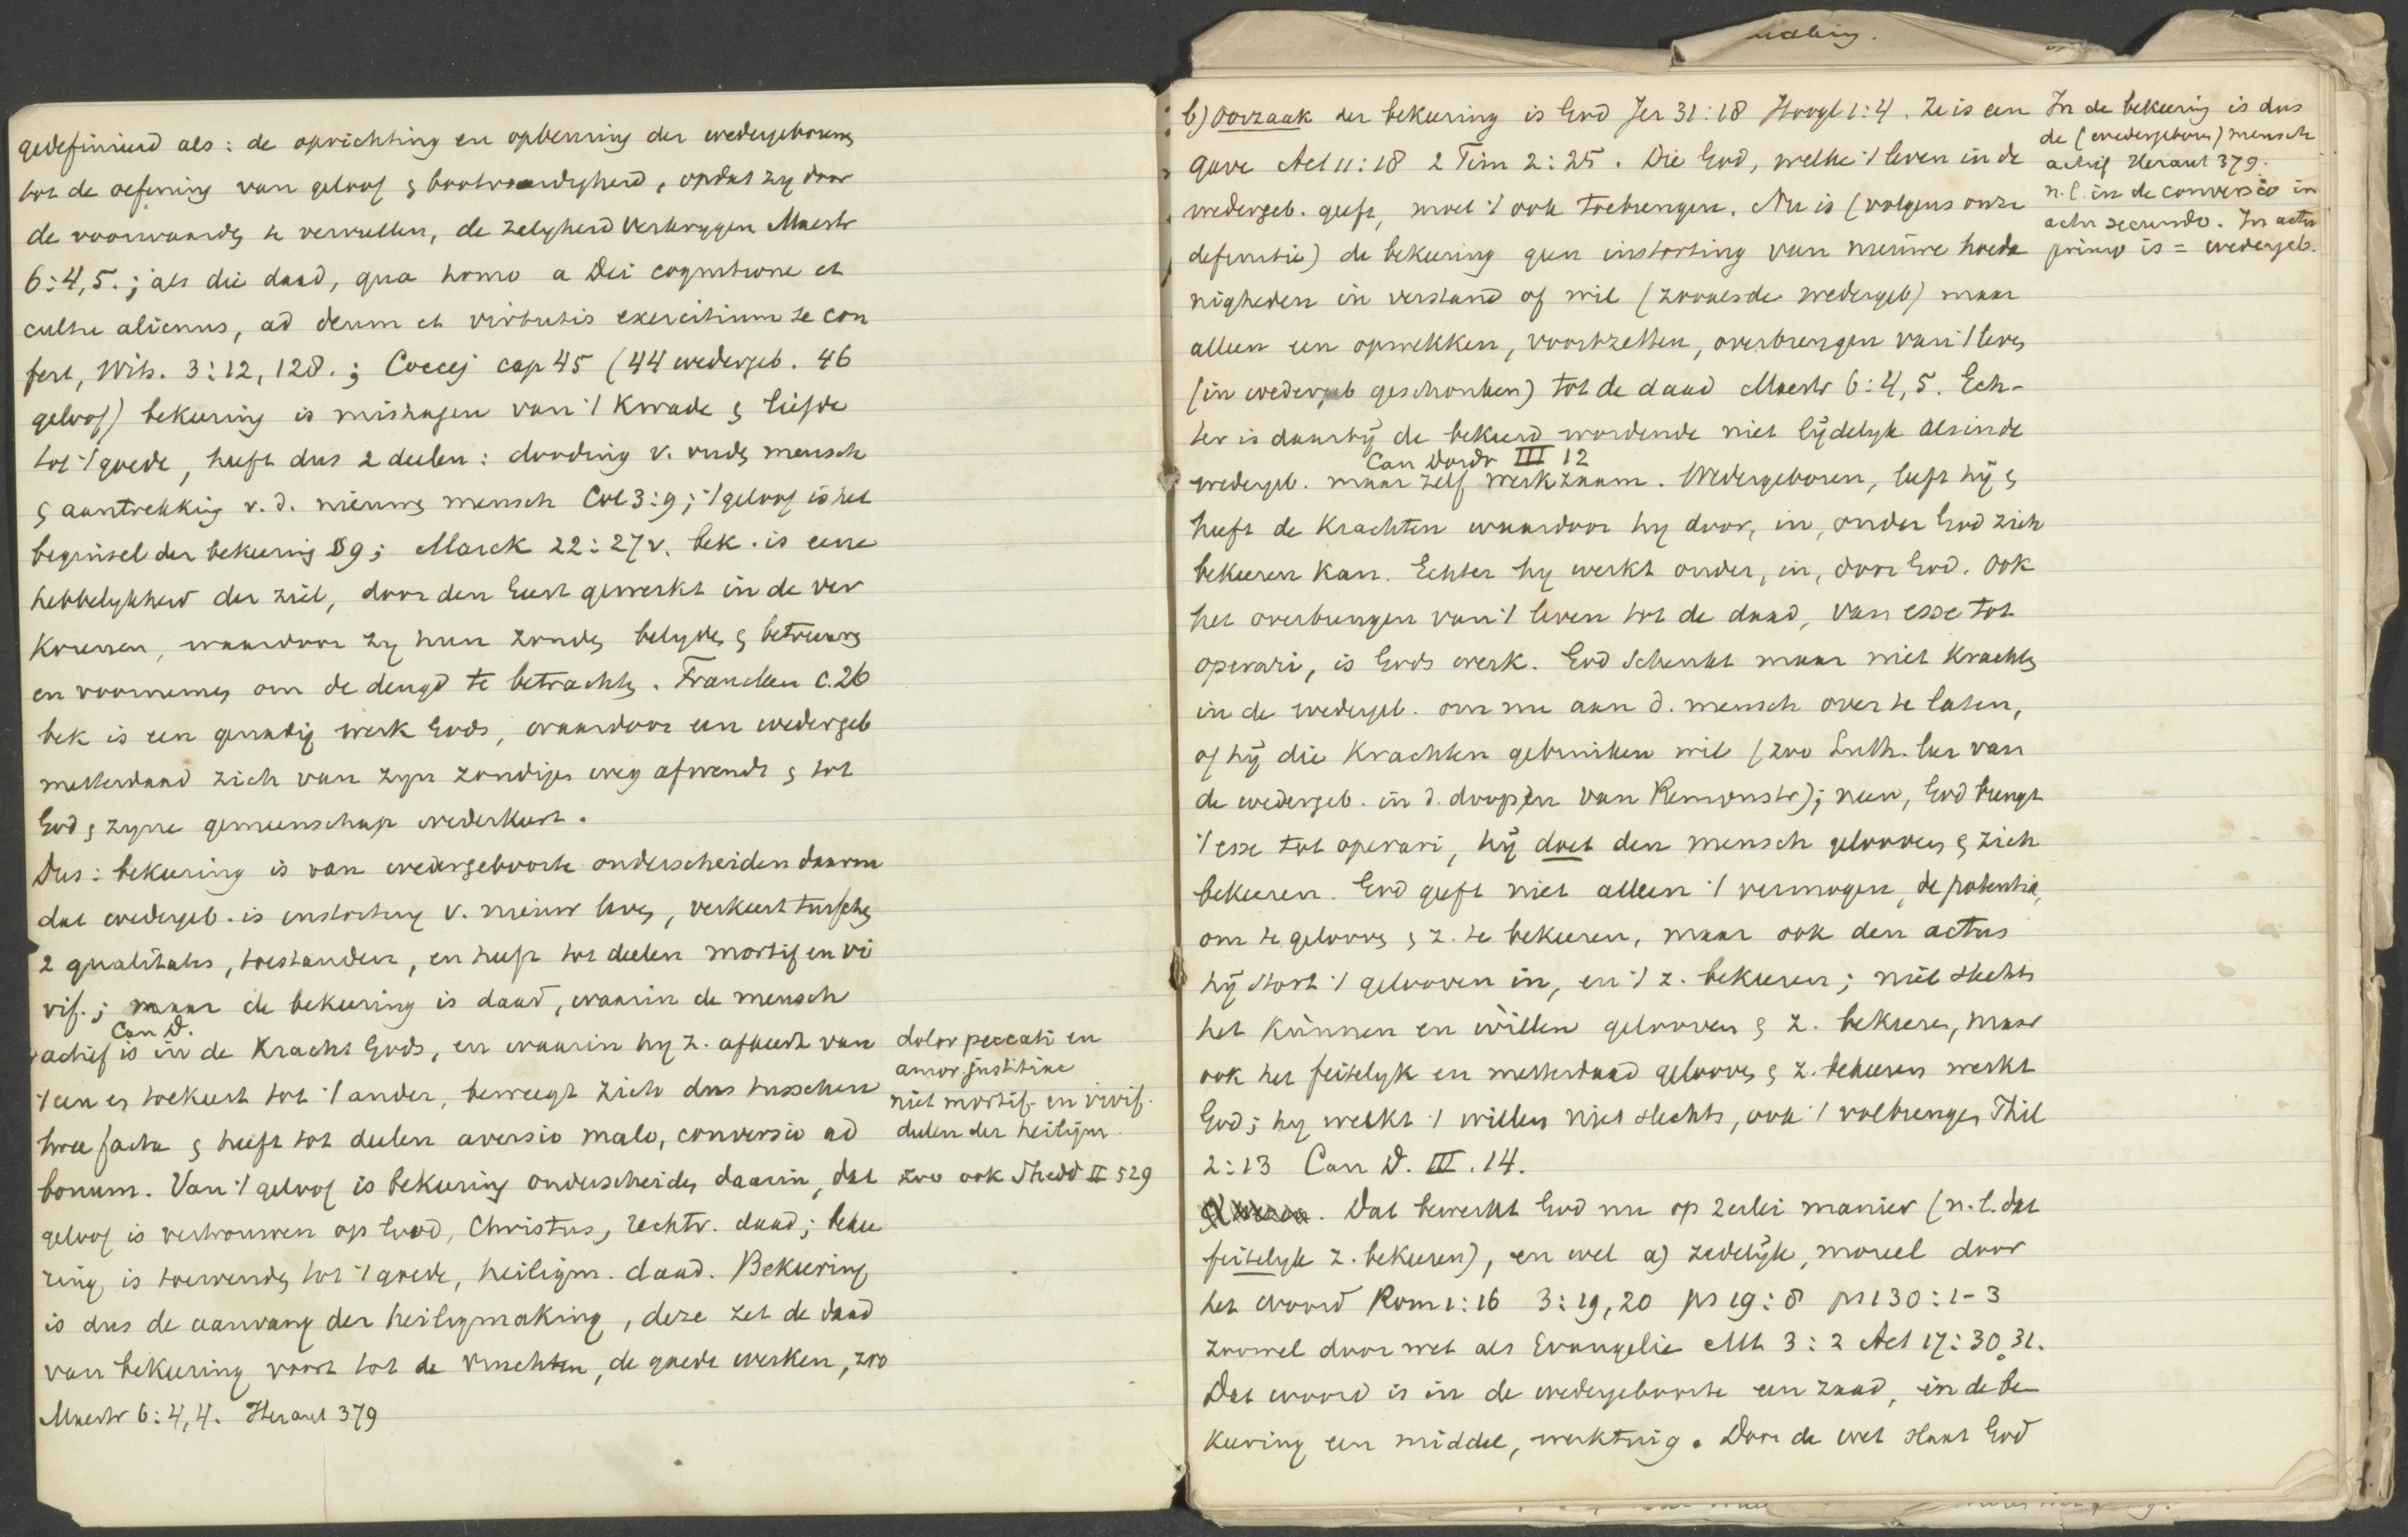 gedefinieerd als: de oprichting en opbeuring der wedergeborens
tot de oefening van geloof & boetvaardigheid, opdat zij door
de voorwaarde te vervullen, de zaligheid verkrygen Maestr
6:4,5.; als die daad, qua homo a Dei cognitione et
cultu alienus, ad deum et virtutis exercitium se con
fert, Wits. 3:12,128.; Coccej cap 45 (44 wedergeb. 46
geloof) bekeering is mishagen van 't kwade & liefde
tot 't goede, heeft dus 2 deelen: dooding v. oude mensch
& aantrekking v.d. nieuwe mensch Col 3:9; 't geloof is het
beginsel der bekeering §9; Marck 22:27v. bek. is eene
hebbelykheid der ziel, door den Geest gewerkt in de ver
korenen, waardoor zy hun zonde belyde & betreure
en voorneme om de deugd te betrachte. Francken c.26
bek is een genadig werk Gods, waardoor een wedergeb
metterdaad zich van zyn zondige weg afwendt & tot
God & zyne gemeenschap wederkeert.
Dus: bekeering is van wedergeboorte onderscheiden daarin
dat wedergeb. is instorting v. nieuw leve, verkeert tussche
2 qualitates, toestanden, en heeft tot deelen mortif en vi
vif.; maar de bekeering is daad, waarin de mensch
Can D.
actief is in de kracht Gods, en waarin hy z. afkeert van
't een en toekeert tot 't ander, beweegt zich dus tusschen
twee facta & heeft tot deelen aversio malo, conversio ad
bonum. Van 't geloof is bekeering onderscheide daarin, dat
geloof is vertrouwen op God, Christus, rechtv. daad; bekee
ring is toewende tot 't goede, heiligm. daad. Bekeering
is dus de aanvang der heiligmaking, deze zet de daad
van bekeering voort tot de vruchten, de goede werken, zoo
Maestr 6:4,4. Heraut 379
dolor peccati en
amor justitiae
niet mortif. en vivif.
deelen der heiligm.
zoo ook Shedd II 529
b) Oorzaak der bekeering is God Jer 31:18 Hoogl 1:4. Ze is een
gave Act 11:18 2 Tim 2:25. Die God, welke 't leven in de
wedergeb. geeft, moet 't ook toebrengen. Nu is (volgens onze
definitie) de bekeering geen instorting van nieuwe hoeda
nigheden in verstand of wil (zooals de wedergeb) maar
alleen een opwekken, voortzetten, overbrengen van 't leve
(in wedergeb geschonken) tot de daad Maestr 6:4,5. Ech-
ter is daarbij de bekeerd wordende niet lijdelyk als in de
Can Dordr III 12
wedergeb. maar zelf werkzaam. Wedergeboren, leeft hij &
heeft de krachten waardoor hy door, in, onder God zich
bekeeren kan. Echter hy werkt onder, in, door God. Ook
het overbrengen van 't leven tot de daad, van esse tot
operari, is Gods werk. God schenkt maar niet krachte
in de wedergeb. om nu aan d. mensch over te laten,
of hij die krachten gebruiken wil (zoo Luth. leer van
de wedergeb. in d. doop, en van Remonstr); neen, God brengt
't esse tot operari, hij doet den mensch geloove & zich
bekeeren. God geeft niet alleen 't vermogen, de potentia,
om te geloove & z. te bekeeren, maar ook den actus
hij stort 't gelooven in, en 't z. bekeeren; niet slechts
het kunnen en willen gelooven & z. bekeere, maar
ook het feitelyk en metterdaad geloove & z. bekeeren werkt
God; hy werkt 't willen niet slechts, ook 't volbrenge, Phil
2:13 Can D. III. 14.
Dat bewerkt God nu op 2erlei manier (n.l. dat
feitelyk z. bekeeren), en wel a) zedelijk, moreel door
het woord Rom 1:16 3:19,20 ps 19:8 ps 130:1-3
zoowel door wet als Evangelie Mt 3:2 Act 17:30,31.
Dat woord is in de wedergeboorte een zaad, in de be
keering een middel, werktuig. Door de wet slaat God
In de bekeering is dus
de (wedergeboren) mensch
actief Heraut 379.
n.l. in de conversio in
actu secundo. In actu
primo is = wedergeb.